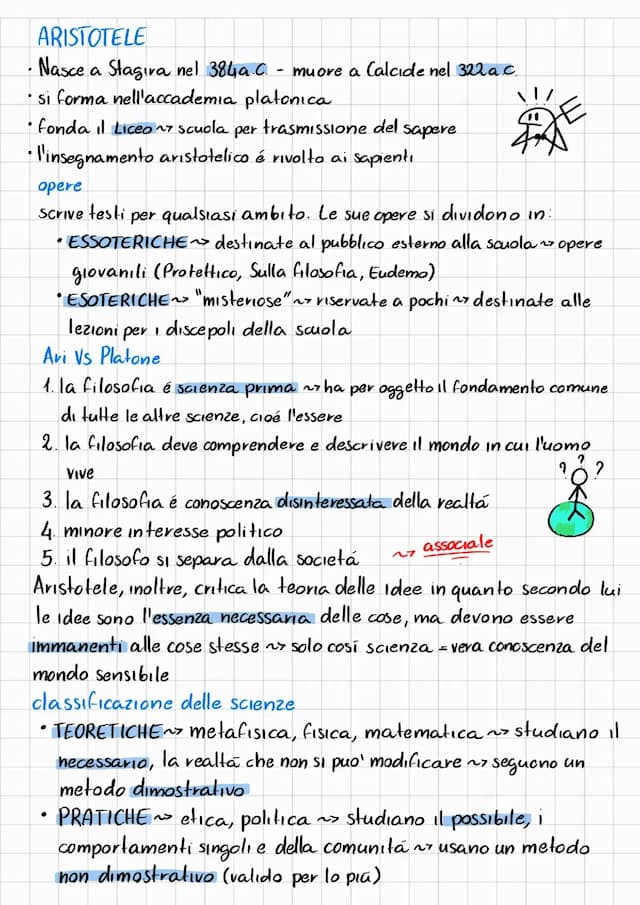 ARISTOTELE
· Nasce a Stagira nel 384 a.C. - muore a Calcide nel 322 a.C.
· si forma nell'accademia platonica
· fonda il Liceo ~> scuola per trasmissione del sapere
· l'insegnamento aristotelico é rivolto ai sapienti
opere
scrive testi per qualsiasi ambito. Le sue opere si dividono in:
· ESSOTERICHE ~> destinate al pubblico esterno alla scuola ~> opere
giovanili (Protettico, Sulla filosofia, Eudemo)
· ESOTERICHE ~> "misteriose" ~> riservate a pochi ~> destinate alle
lezioni per i discepoli della scuola
Ari Vs Platone
1. la filosofia é scienza prima ~> ha per oggetto il fondamento comune
di tutte le altre scienze, cioé l'essere
2. la filosofia deve comprendere e descrivere il mondo in cui l'uomo
vive
? ? ?
3. la filosofia é conoscenza disinteressata della realtá
4. minore interesse politico
5. il filosofo si separa dalla societá ~> associale
Aristotele, inoltre, critica la teoria delle idee in quanto secondo lui
le idee sono l'essenza necessaria delle cose, ma devono essere
immanenti alle cose stesse ~> solo cosí scienza = vera conoscenza del
mondo sensibile
classificazione delle scienze
· TEORETICHE ~> metafisica, fisica, matematica ~> studiano il
necessario, la realtá che non si puo' modificare ~> seguono un
metodo dimostrativo
· PRATICHE ~> etica, politica ~> studiano il possibile, i
comportamenti singoli e della comunitá ~> usano un metodo
non dimostrativo (valido per lo piú)